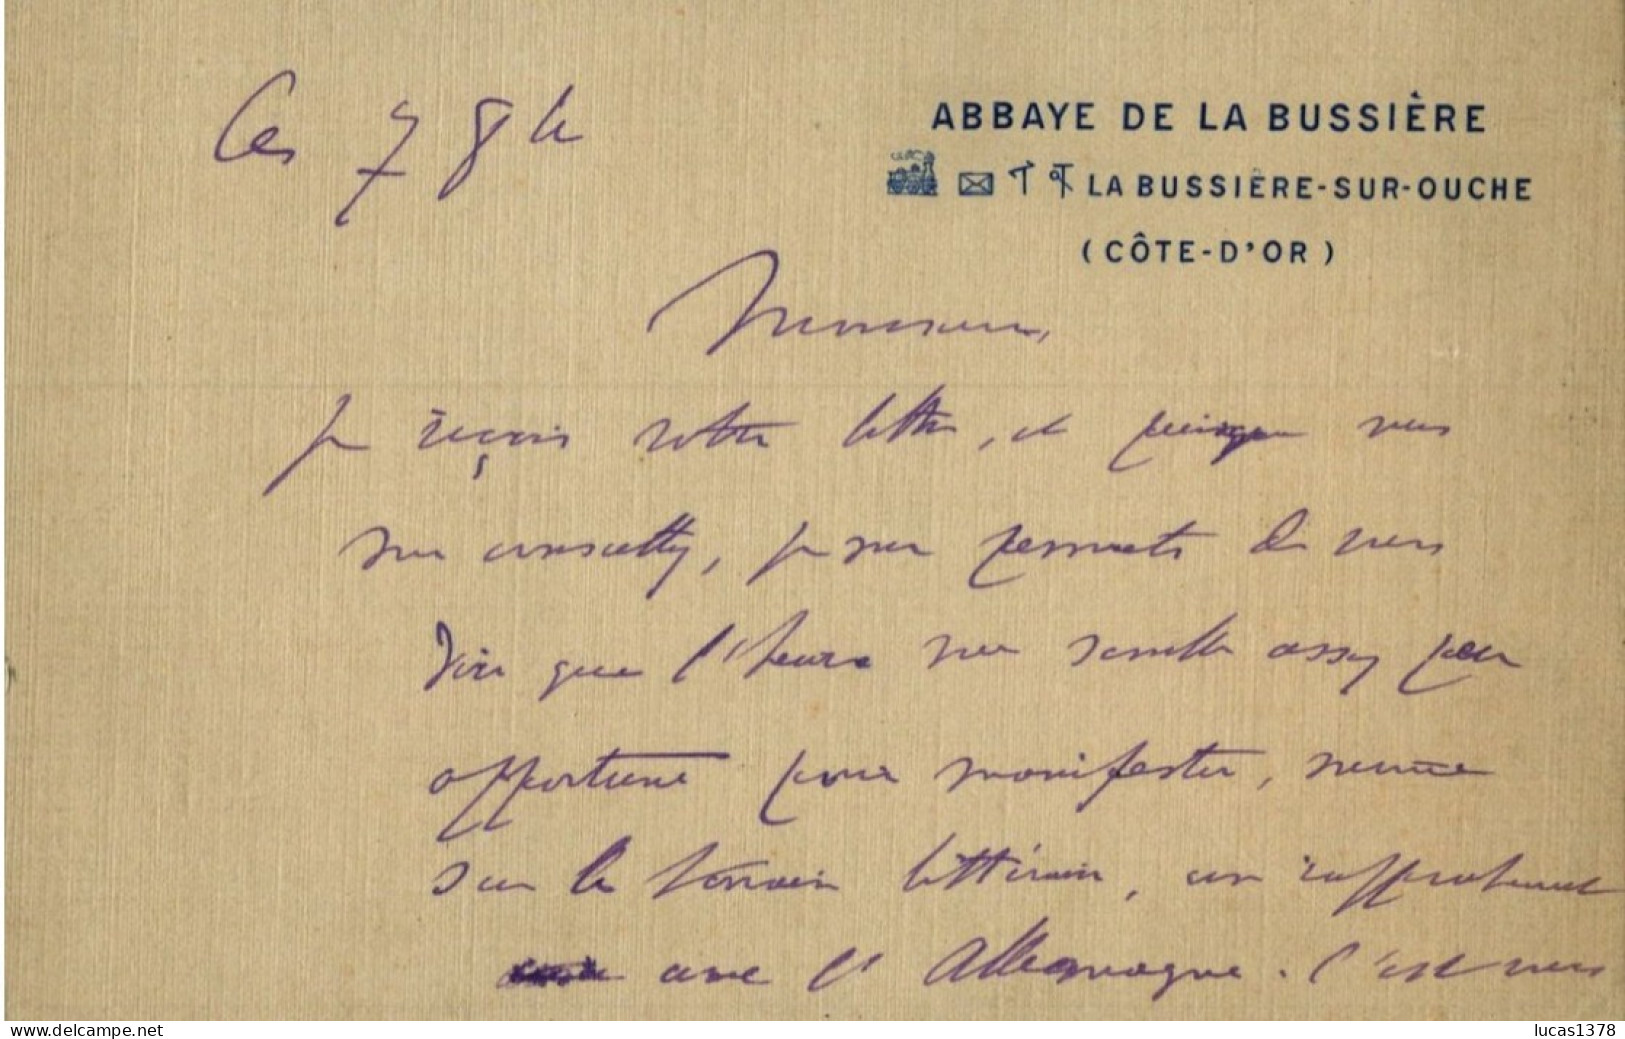 Ce 7 8b
ABBAYE DE LA BUSSIÈRE
LA BUSSIÈRE-SUR-OUCHE
(CÔTE-D'OR)
Monsieur,
Je reçois votre lettre, et puisque vous
me consultez, je me permets de vous
dire que l'heure me semble assez peu
opportune pour manifester, même
sur le terrain littéraire, un rapprochement
avec l'Allemagne. C'est vous
www.delcampe.net
lucas1378